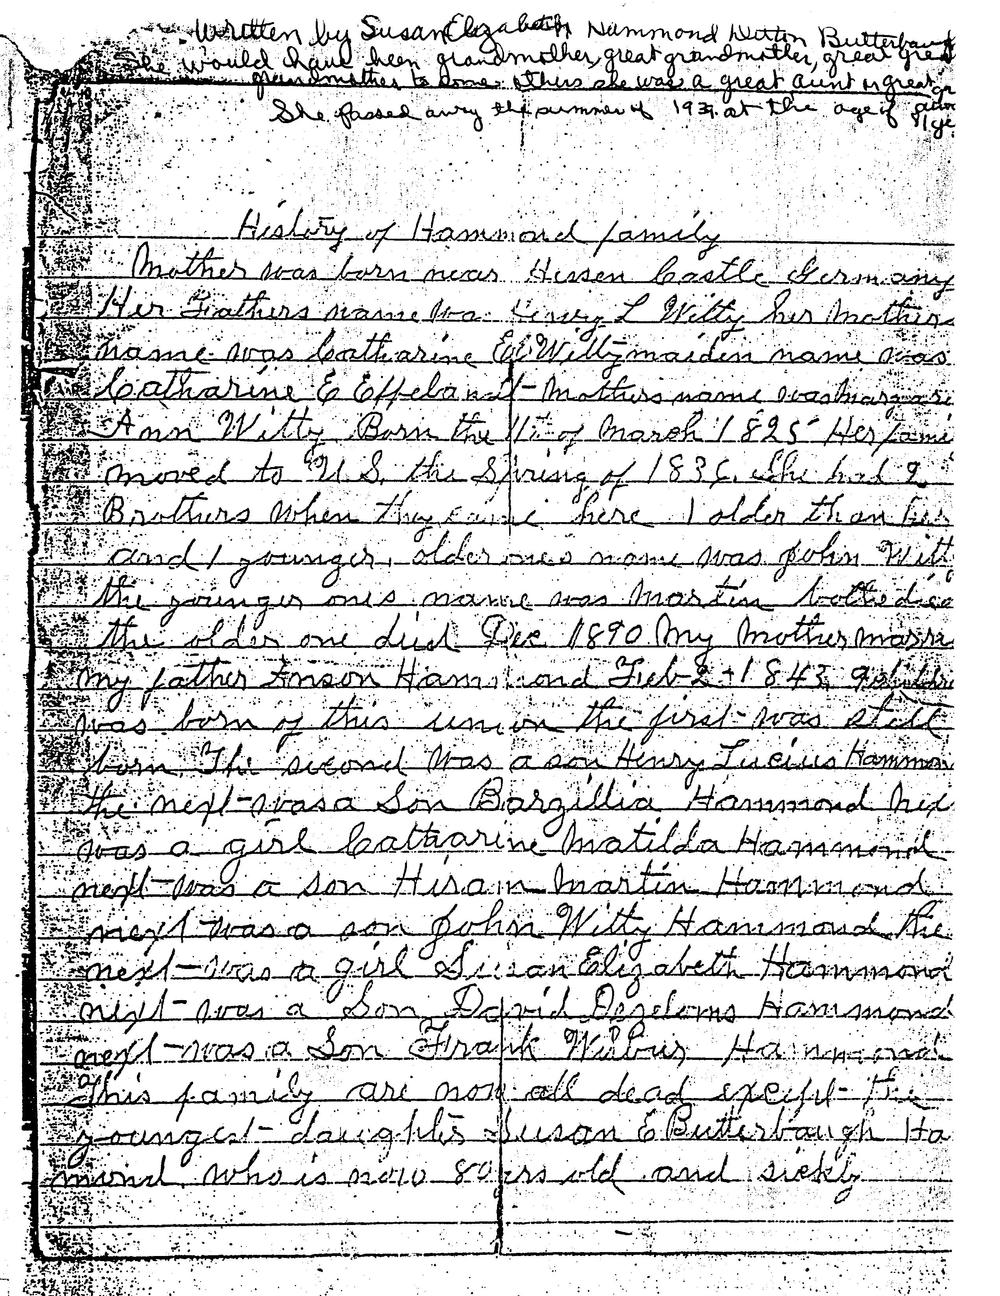 Written by Susan Elizabeth Hammond Butterbaugh
She would have been grandmother, great grandmother, great great
grandmother to some. others she was a great aunt or great gr
aun
She passed away the summer of 1931 at the age of 81 ye
History of Hammond family
Mother was born near Hessen Castle Germany
Her Fathers name wa Henry L Witty her mothers
name was Catharine E Witty maiden name was
Catharine E Effeland - Mothers name was Margare
Ann Witty Born the 11t of March 1825 Her fami
moved to U.S. the Spring of 1836. She had 2
Brothers when they came here 1 older than her
and 1 younger, older ones name was John Witt
the younger ones name was Martin bothe dies
the older one died Dec 1890 My Mother marri
my father Anson Hammond Feb 2 1843 9 childre
was born of this union the first was still
born The second was a son Henry Lucius Hammon
the next was a Son Barzillia Hammond nex
was a girl Catharine Matilda Hammond
next was a son Hiram Martin Hammond
next was a son John Witty Hammond the
next was a girl Susan Elizabeth Hammond
next was a Son David Hammond
next was a Son Frank Wilbur Hammond
This family are now all dead except the
youngest daughter Susan E Butterbaugh Ha
mond who is now 80 yrs old and sickly